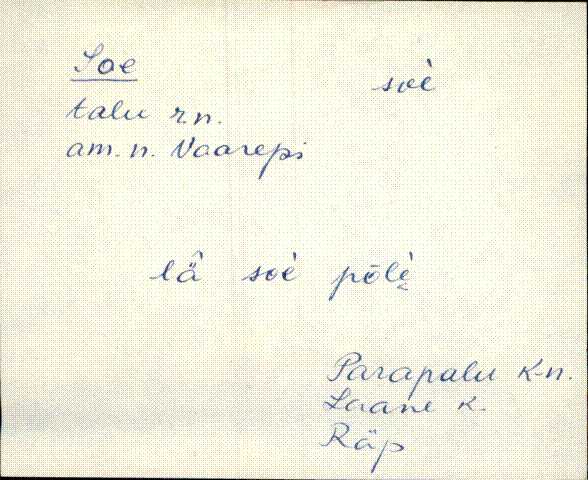 Soe soè
talu r.n.
am. n. Vaarepi
lä̂ soè pōlè̬
Parapalu k-n.
Laane k.
Räp